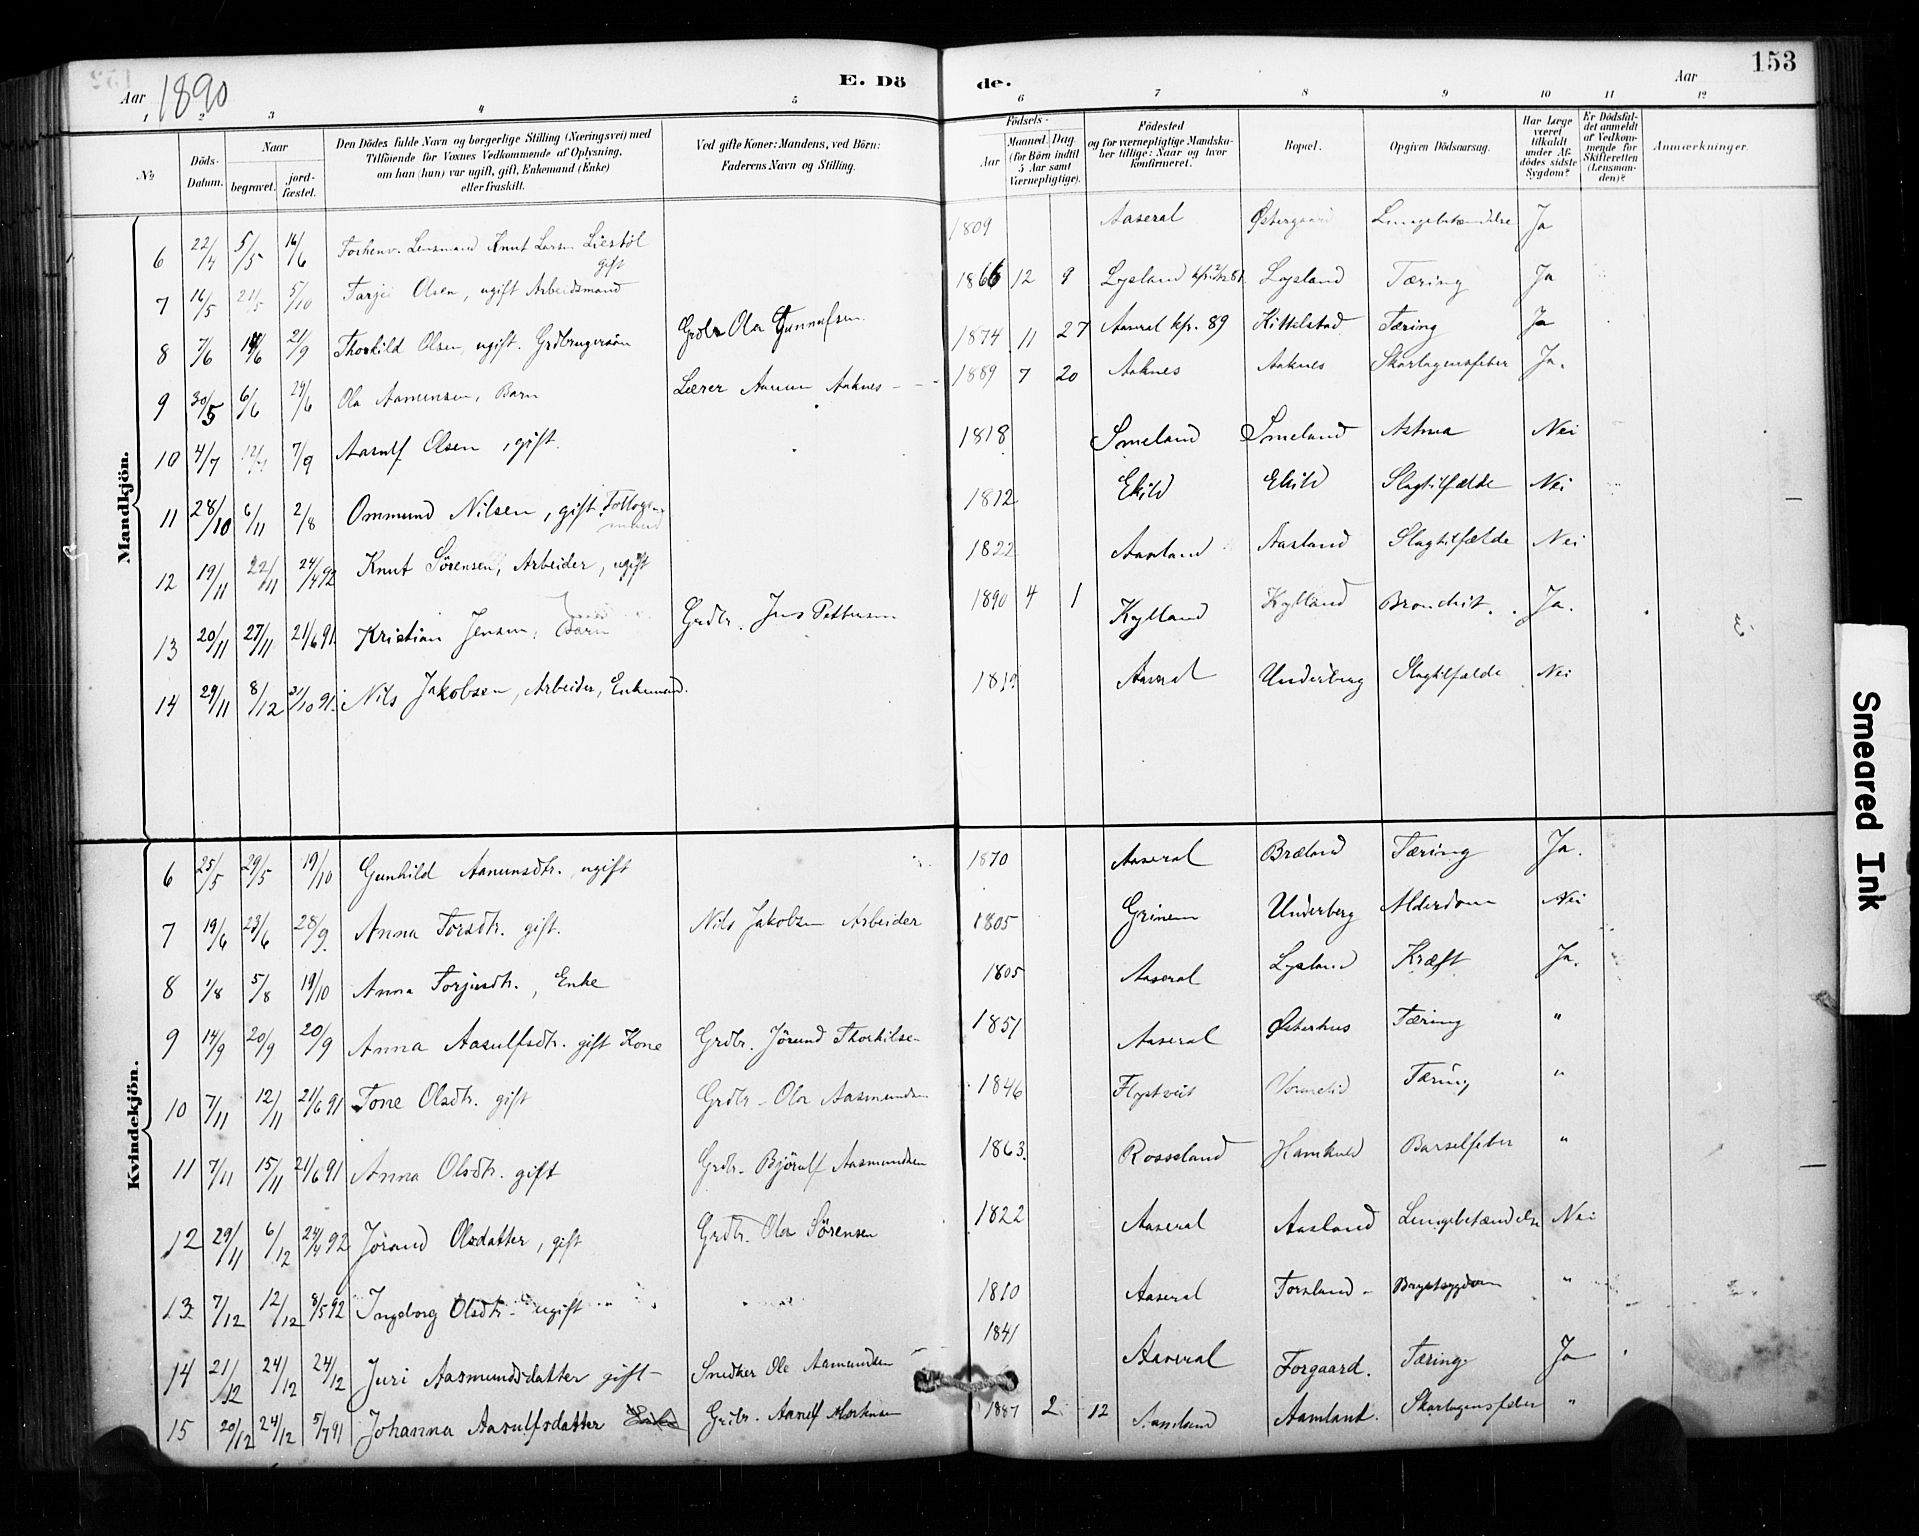 153
Aar 1890
E. Døde.
Aar
1 2 3 4 5 6 7 8 9 10 11 12
No
Døds-Datum.
Naar
begravet.
jord-fæstet.
Den Dødes fulde Navn og borgerlige Stilling (Næringsvei) med Tilføiende for Voxnes Vedkommende af Oplysning, om han (hun) var ugift, gift, Enkemand (Enke) eller fraskilt.
Ved gifte Koner: Mandens, ved Børn: Faderens Navn og Stilling.
Fødsels-
Aar
Maaned Dag (for Børn indtil 5 Aar samt Værnepligtige).
Fødested og for værnepligtige Mandskaber tillige: Naar og hvor konfirmeret.
Bopæl.
Opgiven Dødsaarsag.
Har Læge været tilkaldt under Afdødes sidste Sygdom?
Er Dødsfaldet anmeldt af Vedkommende for Skifteretten (Lensmanden)?
Anmærkninger.
Mandkjøn.
6 22/4 5/5 16/6 Forhenv. Lensmand Knut Larsen Liestöl gift 1809 Aaseral Østergaard Lungebetændelse Ja
7 16/5 21/5 5/10 Tarjei Olsen, ugift Arbeidsmand 1866 12 9 Lysland Lysland Tæring Ja
8 7/6 /6 21/9 Thorkild Olsen, ugift. Grdbrugersön Grdbr Ola Gunnufsen 1874 11 27 Aaseral kfr. 89 Kittelstad Tæring Ja
9 30/5 6/6 29/6 Ola Aanensen, Barn Lærer Aanen Aaknes 1889 7 20 Aaknes Aaknes Skarlagensfeber Ja.
10 4/7 7/9 Aasulf Olsen, gift. 1818 Smeland Smeland Astma Nei
11 28/10 6/11 2/8 Ommund Nilsen, gift 1812 Ekild Ekild Slagtilfælde Nei
12 19/11 22/11 24/4 92 Knut Sörensen, Arbeider, ugift 1822 Aasland Aasland Slagtilfælde Nei
13 20/11 27/11 21/6 91 Kristian Jensen, Barn Grdbr. Jens Pettersen 1890 4 1 Kylland Kylland Bronchit. Ja.
14 29/11 8/12 21/10 91. Nils Jakobsen, Arbeider, Enkemand. Aaseral Underberg Slagtilfælde Nei
Kvindekjøn.
6 25/5 29/5 19/10 Gunhild Aanunsdtr. ugift 1870 Aaseral Bræland Tæring Ja.
7 19/6 23/6 28/9. Anna Torsdtr. gift. Nils Jakobsen Arbeider 1805 Grinem Underberg Alderdom Nei
8 1/8 5/8 19/10 Anna Torjusdtr., Enke 1805 Aaseral Lysland Kræft Ja.
9 14/9 20/9 20/9 Anna Aasulfsdtr. gift Kone Grdbr. Jörund Thorkilsen 1851 Aaseral Østerhus Tæring "
10 7/11 12/11 21/6 91 Tone Olsdtr. gift Grdbr. Ola Aasmundsen 1846 Flystveit Vormelid Tæring "
11 7/11 15/11 21/6 91 Anna Olsdtr. gift Grdbr. Björulf Aasmundsen 1863. Rosseland Hamkold Barselfeber "
12 29/11 6/12 24/4 92 Jørand Olsdatter, gift Grdbr. Ola Sörensen 1822 Aaseral Aasland Lungebetændelse Nei
13 7/12 12/12 8/5 92 Ingeborg Olsdtr. ugift 1810 Aaseral Forsland Brystsygdom "
14 21/12 24/12 24/12 Juri Aasmundsdatter gift Snedker Ole Aamundsen 1841 Aaseral Forgaard. Tæring Ja
15 20/12 24/12 5/7 91 Johanna Aasulfsdatter Grdbr. Aasulf 1887 2 12 Aamland Aamland. Skarlagensfeber "
Smeared Ink